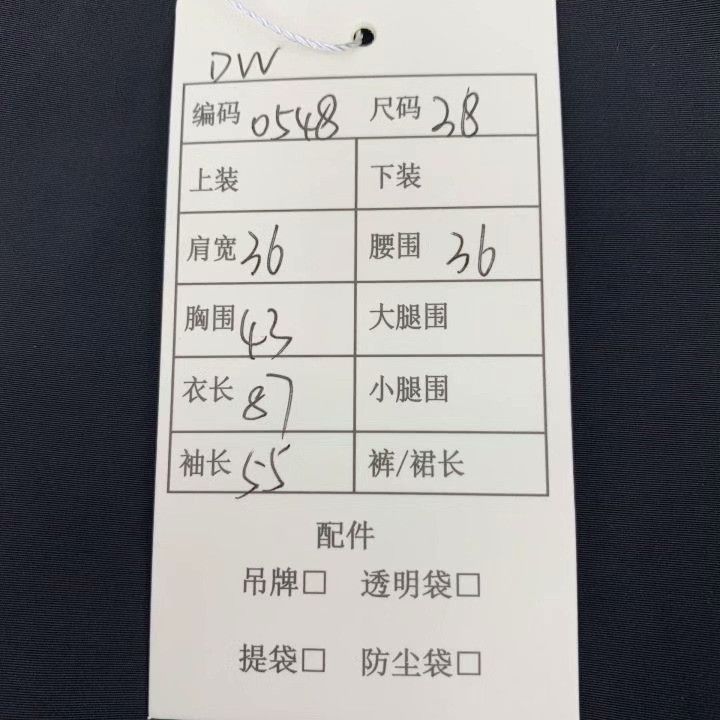 DW
编码 0548 尺码 38
上装 下装
肩宽 36 腰围 36
胸围 43 大腿围
衣长 87 小腿围
袖长 55 裤/裙长
配件
吊牌□ 透明袋□
提袋□ 防尘袋□